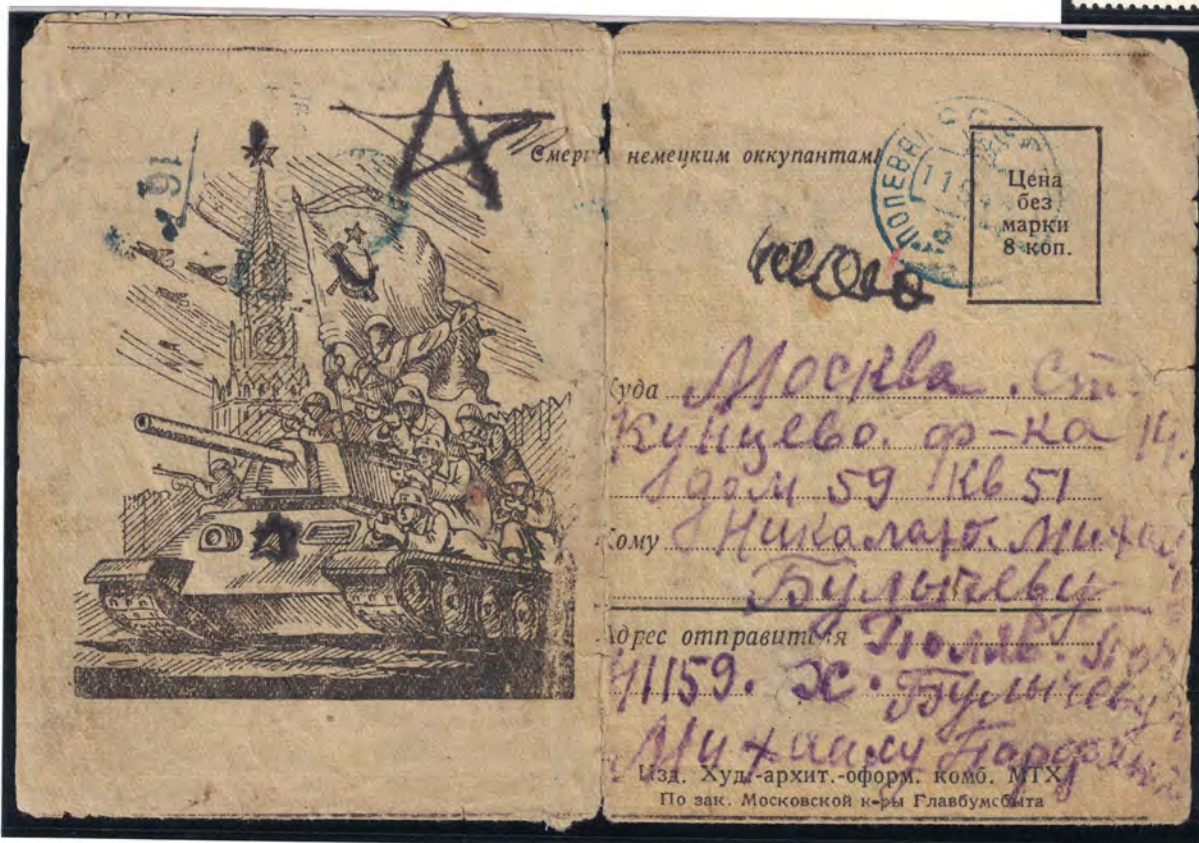 Смерть немецким оккупантам!
ПОЛЕВАЯ
Цена
без
марки
8 коп.
Куда Москва. Ст.
Кунцево. ф-ка 14.
дом 59 кв 51
Кому
Булычеву
Адрес отправителя
41159. Х. Булычеву
Михаилу
Изд. Худ.-архит.-оформ. комб. МТХ
По зак. Московской к-ры Главбумсбыта